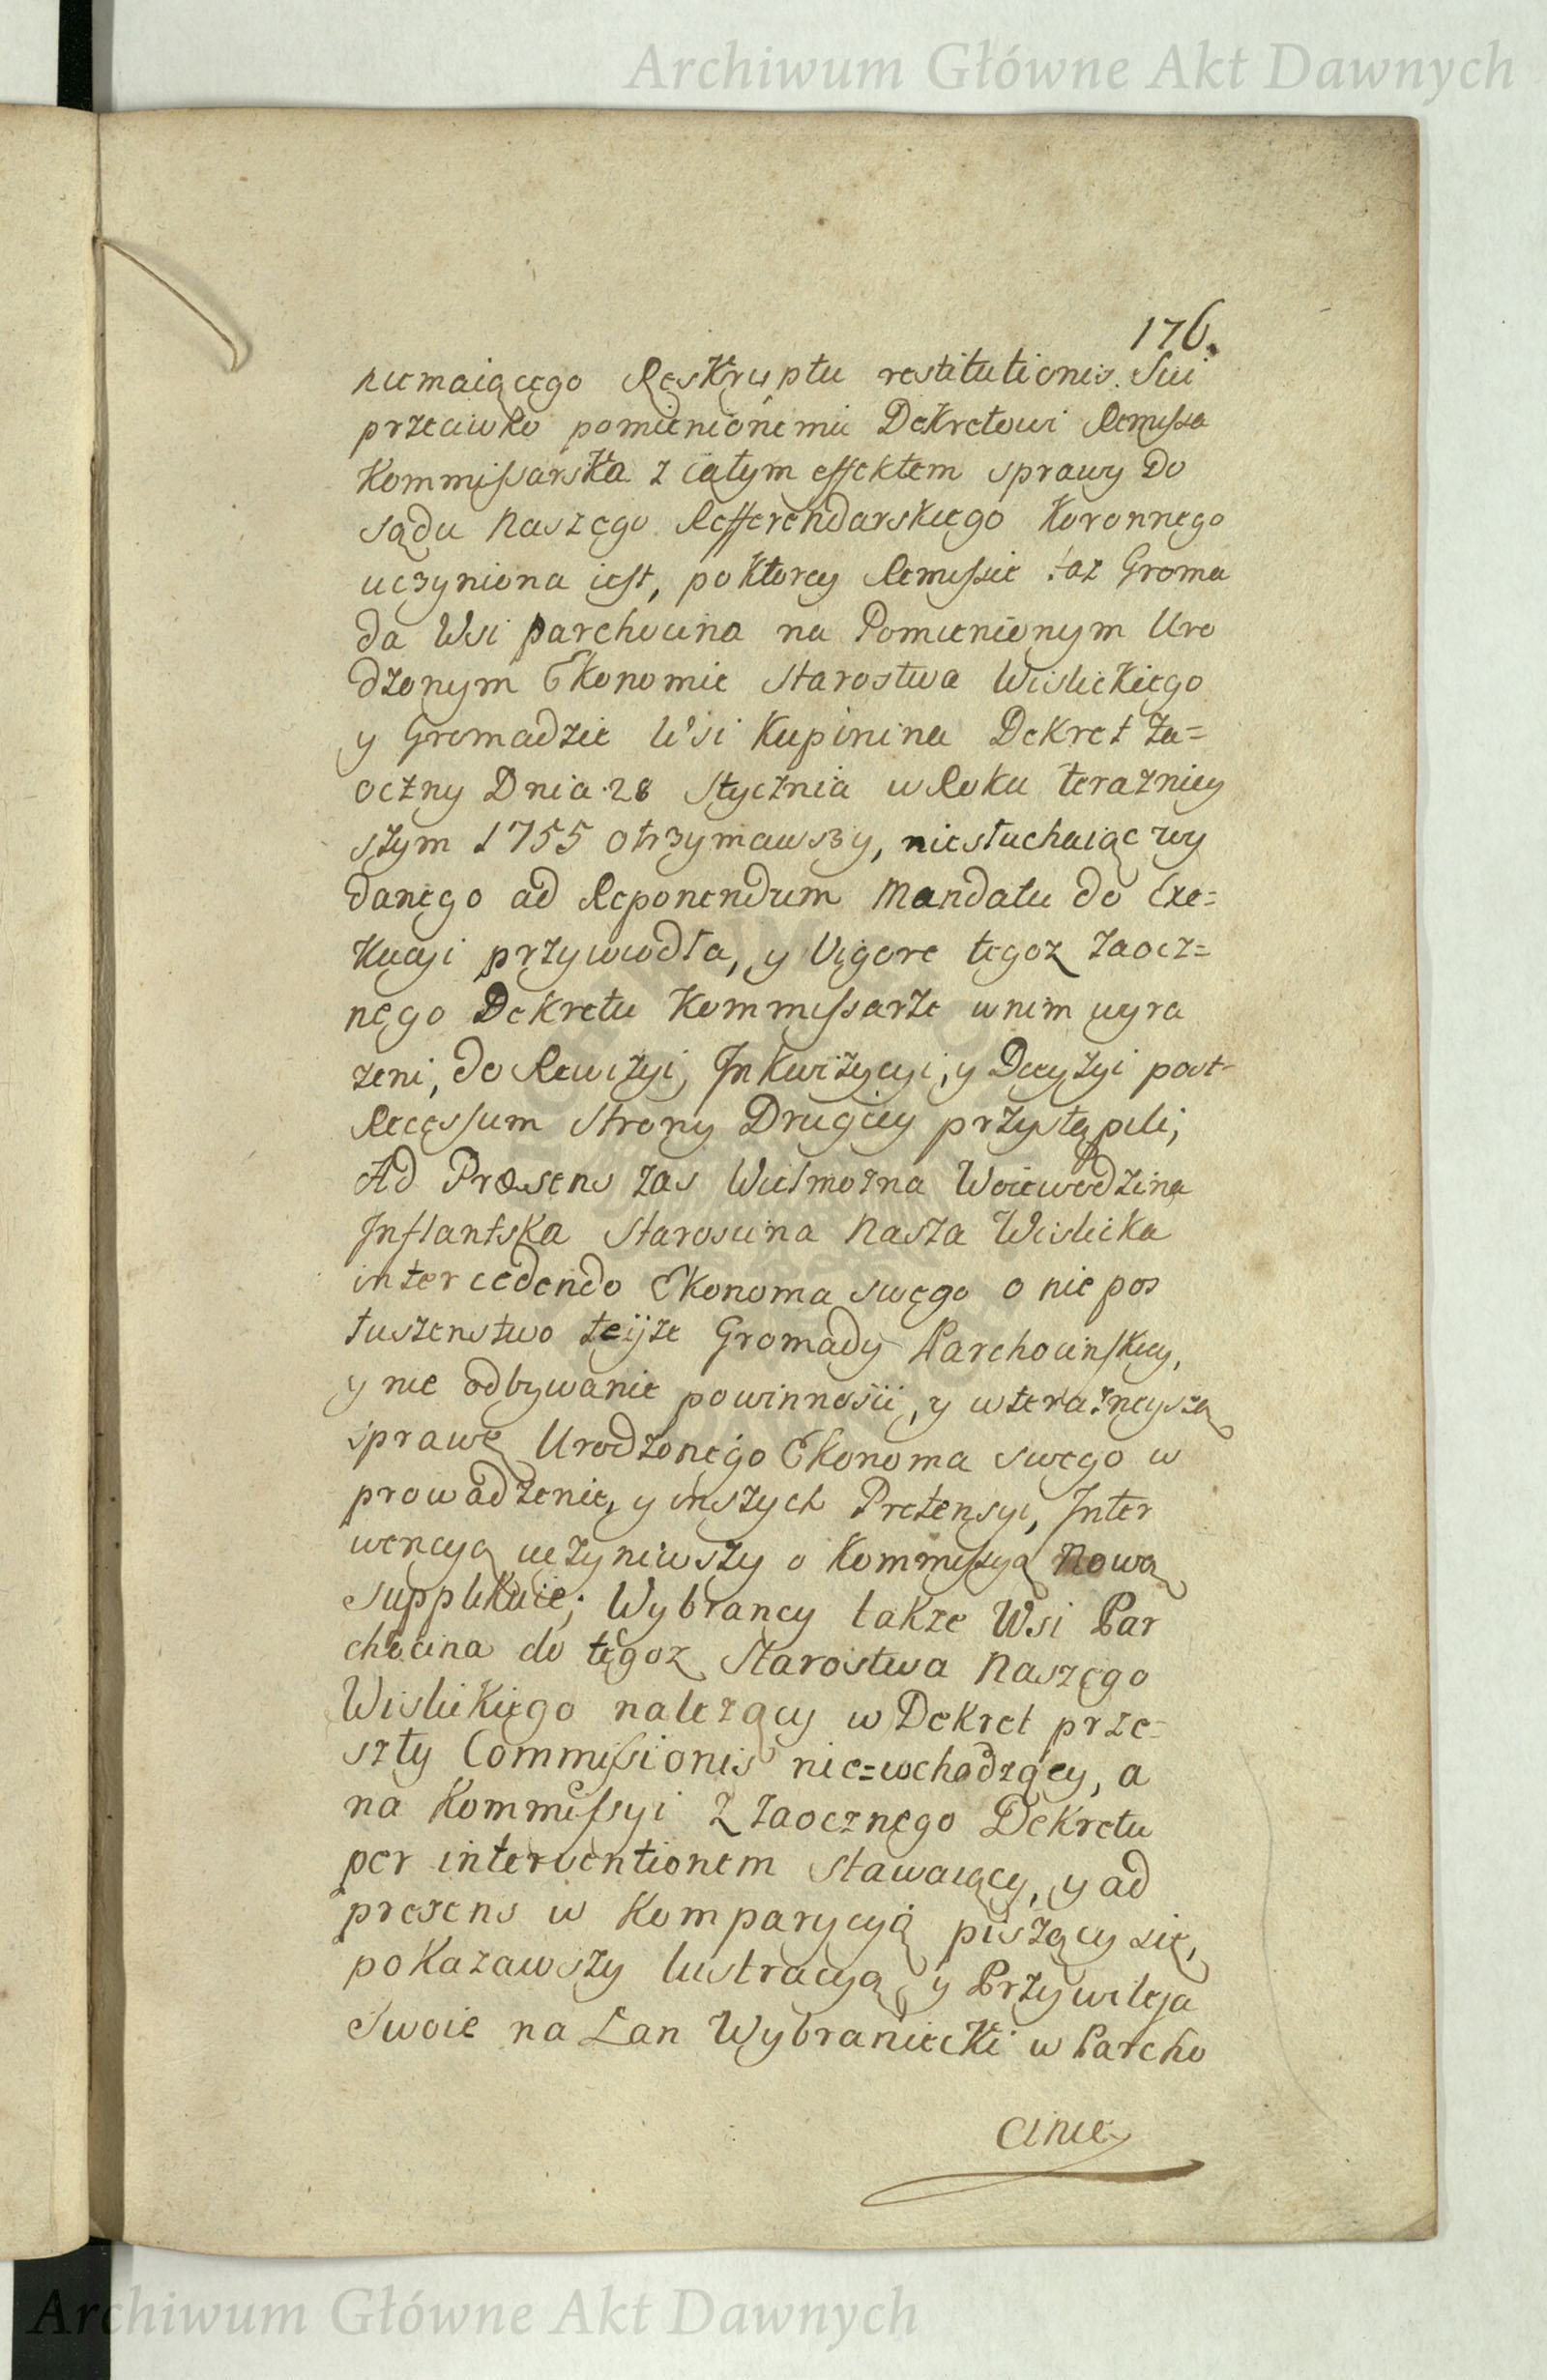 Archiwum Główne Akt Dawnych
176.
niemaiącego Reskryptu restitutionis Sui
przeciwko pomienionemu Dekretowi Remissa
Kommissarska z całym effektem sprawy do
sądu Naszego Refferendarskiego Koronnego
uczyniona iest, po ktorey Remissie taż Groma
da Wsi Parchocina na Pomienionym Uro
dzonym Ekonomie Starostwa Wislickiego
y Gromadzie Wsi Kupinina Dekret Za=
oczny Dnia 28 Stycznia w Roku terazniey
szym 1755 otrzymawszy, niesłuchaiąc wy
danego ad Reponendum Mandatu do Exe=
kucyi przywiodła, y Vigore tegoz Zaocz=
nego Dekretu Kommissarze w nim wyra
zeni, do Rewizyi, Inkwizycyi, y Decyzyi post
Recessum Strony Drugiey przystąpili;
Ad Præsens zas Wielmozna Woiewodzina
Inflantska Starościna Nasza Wislicka
intercedendo Ekonoma swego o nie pos
łuszenstwo teyze Gromady Parchocinskiey,
y nie odbywanie powinności, y w teraznieyszą
sprawę Urodzonego Ekonoma swego w
prowadzenie, y inszych Pretensyi, Inter
wencyą uczyniwszy o Kommissyą Nową
Supplikuie; Wybrancy takze Wsi Par
chocina do tegoz Starostwa Naszego
Wislickiego nalezący w Dekret prze=
szły Commissionis nie=wchodzący, a
na Kommissyi z Zaocznego Dekretu
per interventionem stawaiący, y ad
presens w Komparycyą piszący się,
pokazawszy lustracyą, y Przywileja
Swoie na Łan Wybraniecki w Parcho
cinie
Archiwum Główne Akt Dawnych